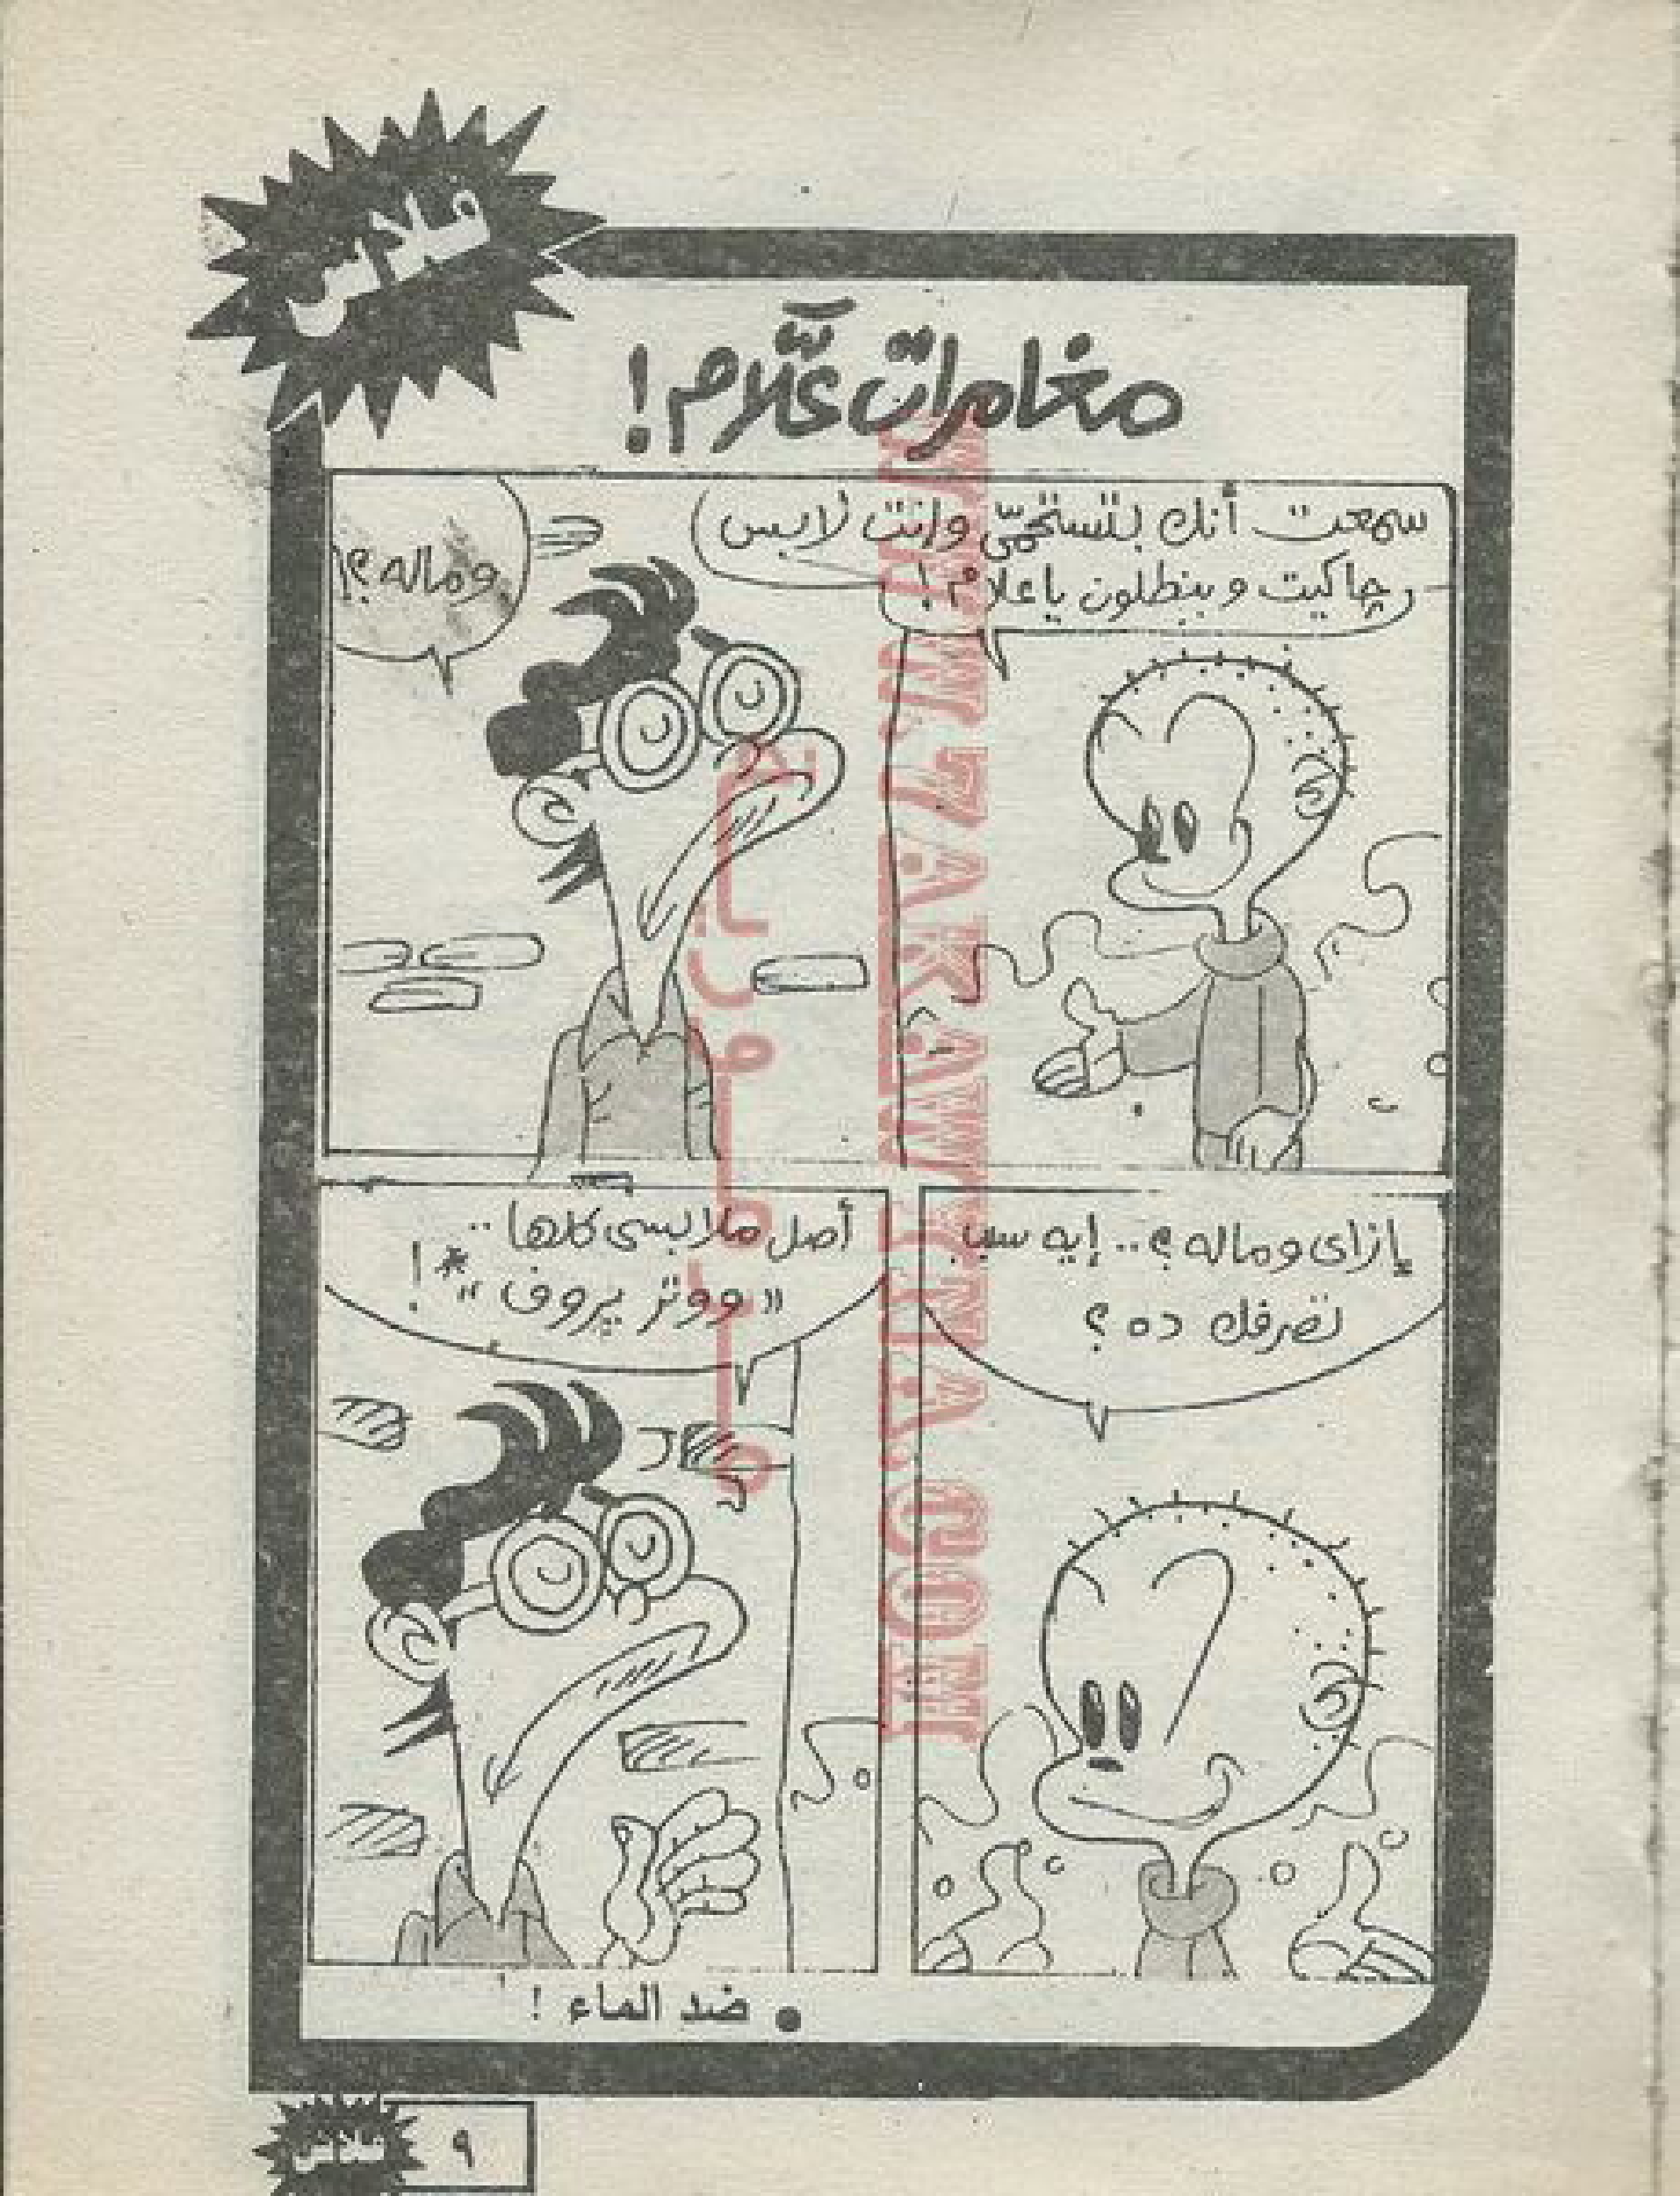 فلاش
مغامرات علّام!
سمعت أنك بتستحمّى وانت لابس
چاكيت وبنطلون ياعلام!
وماله؟!
إزاى وماله؟.. إيه سبب
تصرفك ده؟
أصل ملابسى كلها..
«ووتر پروف»*!
• ضد الماء!
فلاش
٩
WWW.7AKAWYNA.COM